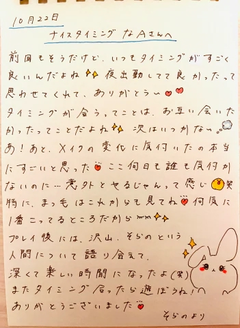 10月22日
ナイスタイミングなAさんへ
前回もそうだけど、いつもタイミングがすごく
良いんだよね✨夜出勤してて良かったって
思わせてくれて、ありがとう〜❤
タイミングが合うってことは、お互い会いた
かったってことだよね♡次はいつかな〜
あ!あと、メイクの変化に気付いたの本当
にすごいと思った❤ここ何日も誰も気付か
ないのに…意外とやるじゃんって感じ笑
特に、まつ毛はこれからも見てね❤何気に
1番こってるところだから✨
プレイ後には、沢山、そらのという
人間について語り合えて、
深くて楽しい時間になったよ(笑)
またタイミング合ったら遊ぼうね!
ありがとうございました❤
そらのより